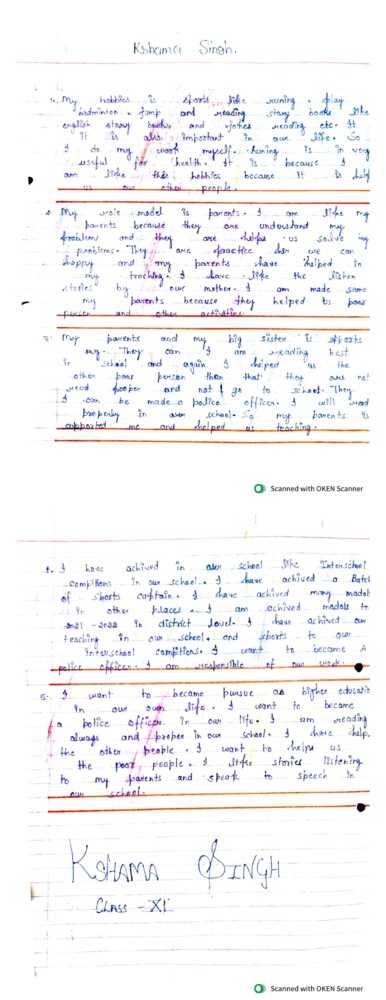 Kshama Singh.
1. My hobbies is sports like runing. play
badminton. Jump and reading story books like
english story books and jokes reading etc. It
it is also important in our life. So
I do my work myself. Runing is in very
useful for health. It is because I
am like this hobbies because it is help
us our other people.
2. My role model is parents. I am like my
parents because they are understand my
problems and they are helps us solve my
problems. They are practice we can
happy and my parents have helped in
my teaching. I have like the listen
stories by our mother. I am made some
my parents because they helped us poor
person and other activities.
3. My parents and my big sister is spports
my. They can I am reading best
in school and again I helped us the
other poor person then that they are not
read proper and not I go to school. They
I can be made a police officer. I will read
properly in our school. So my parents is
supported me and helped us teaching.
Scanned with OKEN Scanner
4. I have achived in our school like Interschool
compitions in our school. I have achived a Batch
of sports captain. I have achived many madals
in other places. I am achived madals to
2021 - 2022 in district level. I have achived our
teaching in our school. and sports to our
interschool compitions. I want to became A
police officer. I am responsible of our work.
5. I want to became pursue as higher educatio
in our own life. I want to became
a police officer in our life. I am reading
always and proper in our school. I have help,
the other people. I want to helps us
the poor people. I like stories listening
to my parents and speak to speech in
our school.
KSHAMA SINGH
CLASS - XI
Scanned with OKEN Scanner